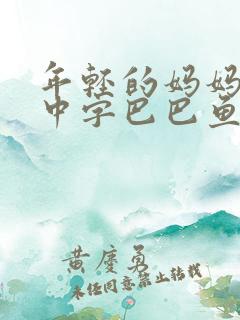 年轻的妈妈
中字巴巴鱼
黄廖勇
未经同意禁止转载